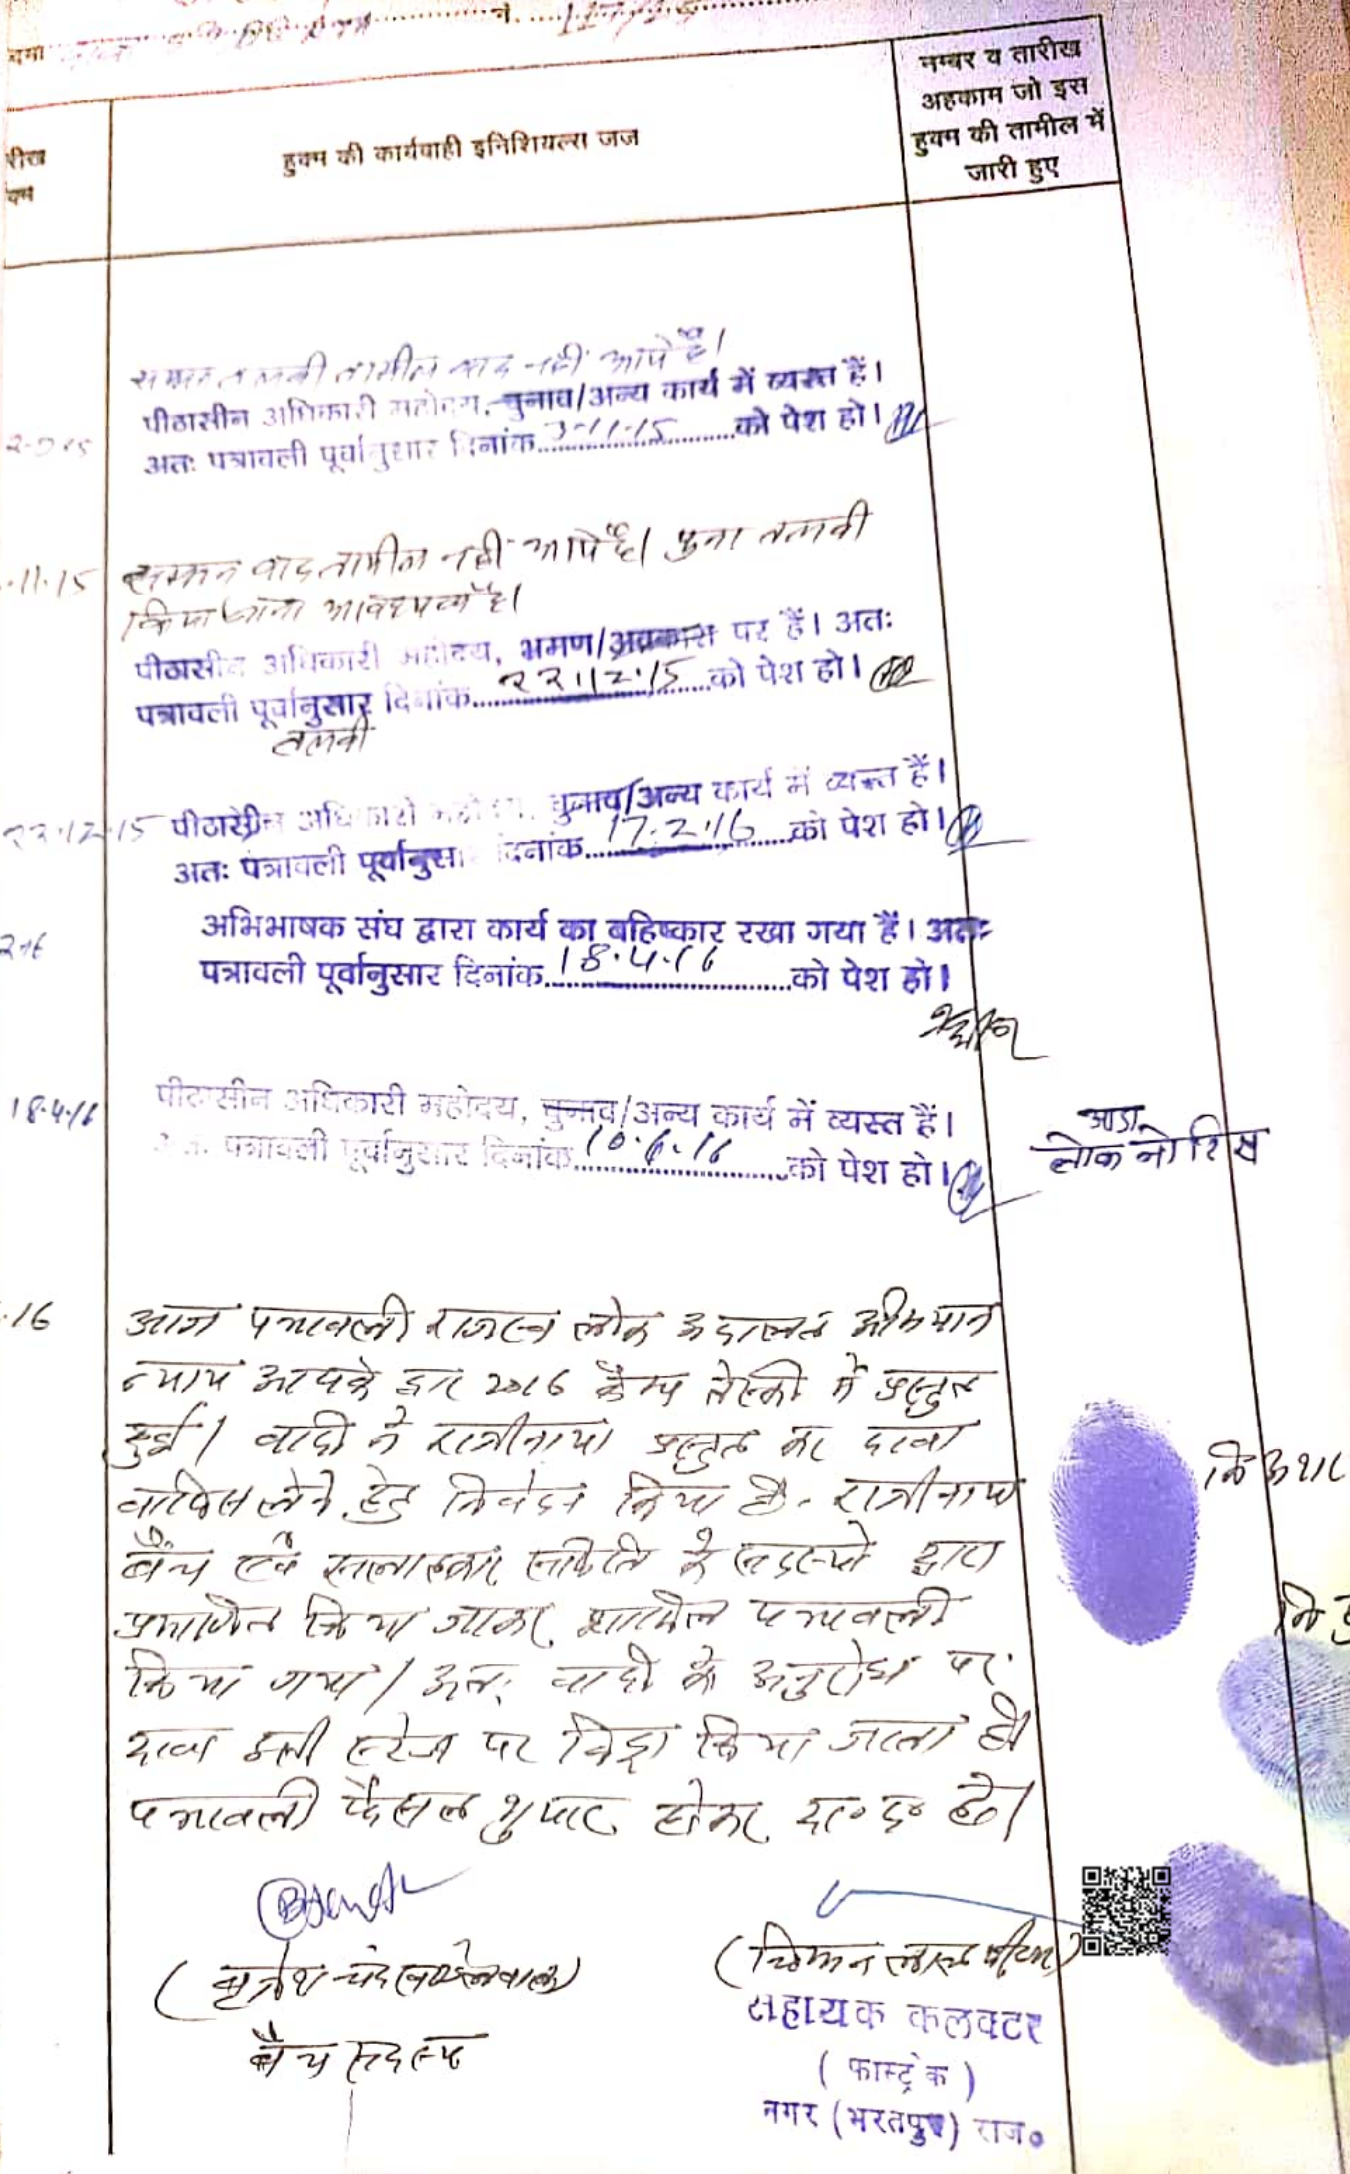 नम्बर व तारीख
अहकाम जो इस
हुक्म की तामील में
जारी हुए
रीख
हुक्म की कार्यवाही इनिशियल्स जज
नहीं आये है।
पीठासीन अधिकारी महोदय, चुनाव/अन्य कार्य में व्यस्त हैं।
अतः पत्रावली पूर्वानुसार दिनांक 3-11-15 को पेश हो।
.11.15
सम्मन बाद तामील नहीं आये है। पुनः तलबी
किया जाना आवश्यक है।
पीठासीन अधिकारी महोदय, भ्रमण/अवकाश पर हैं। अतः
पत्रावली पूर्वानुसार दिनांक 22.12.15 को पेश हो।
तलबी
22.12.15
पीठासीन अधिकारी महोदय, चुनाव/अन्य कार्य में व्यस्त हैं।
अतः पत्रावली पूर्वानुसार दिनांक 17.2.16 को पेश हो।
अभिभाषक संघ द्वारा कार्य का बहिष्कार रखा गया हैं। अतः
पत्रावली पूर्वानुसार दिनांक 18.4.16 को पेश हो।
18.4.16
पीठासीन अधिकारी महोदय, चुनाव/अन्य कार्य में व्यस्त हैं।
अतः पत्रावली पूर्वानुसार दिनांक 10.6.16 को पेश हो।
लोक नोटिस
.16
आज पत्रावली राजस्व लोक अदालत अभियान
न्याय आपके द्वार 2016 कैम्प में प्रस्तुत
हुई। वादी ने राजीनामा प्रस्तुत कर दावा
वापिस लेने हेतु निवेदन किया है. राजीनामा
बैंच एवं सलाहकार समिति के सदस्यो द्वारा
प्रमाणित किया जाकर शामिल पत्रावली
किया गया। अतः वादी के अनुरोध पर
दावा इसी स्टेज पर विड्रा किया जाता है।
पत्रावली फैसल शुमार होकर दा० द० हो।
(बृजेश चंद खण्डेलवाल)
बैंच सदस्य
(चिमन लाल मीणा)
सहायक कलक्टर
(फास्ट्रेक)
नगर (भरतपुर) राज०